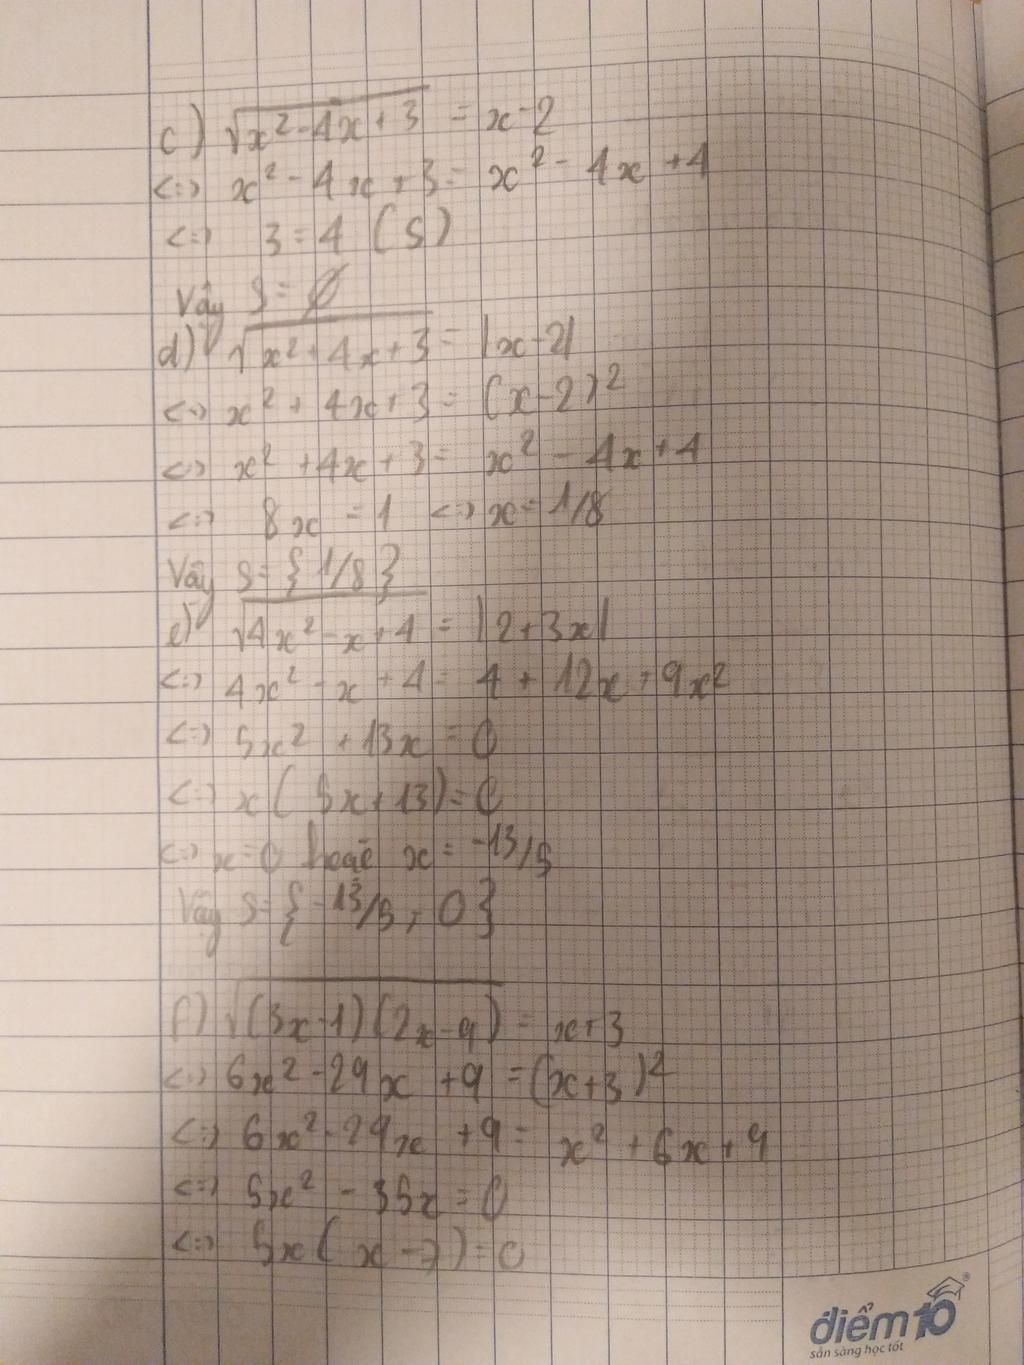 c) √(x² - 4x + 3) = x - 2
<=> x² - 4x + 3 = x² - 4x + 4
<=> 3 = 4 (S)
Vậy S = Ø
d) √(x² + 4x + 3) = |x - 2|
<=> x² + 4x + 3 = (x - 2)²
<=> x² + 4x + 3 = x² - 4x + 4
<=> 8x = 1 <=> x = 1/8
Vậy S = {1/8}
e) √(4x² - x + 4) = |2 + 3x|
<=> 4x² - x + 4 = 4 + 12x + 9x²
<=> 5x² + 13x = 0
<=> x(5x + 13) = 0
<=> x = 0 hoặc x = -13/5
Vậy S = {-13/5, 0}
f) √((3x - 1)(2x - 9)) = x + 3
<=> 6x² - 29x + 9 = (x + 3)²
<=> 6x² - 29x + 9 = x² + 6x + 9
<=> 5x² - 35x = 0
<=> 5x(x - 7) = 0
điểm10
sẵn sàng học tốt